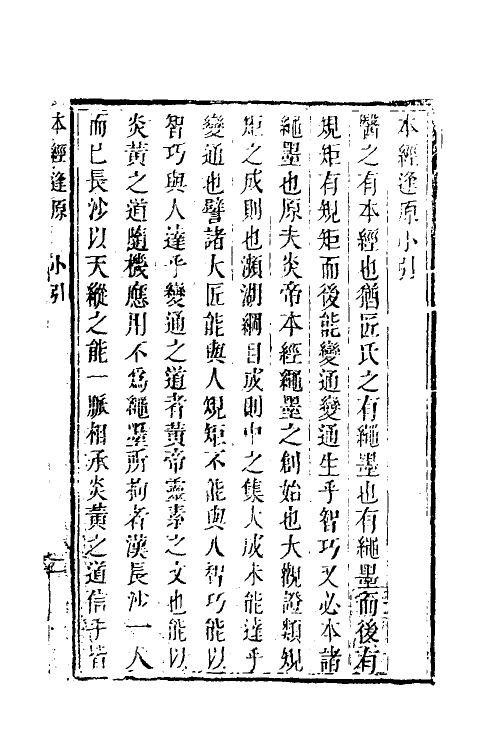 本經逢原小引
醫之有本經也猶匠氏之有繩墨也有繩墨而後有
規矩有規矩而後能變通變通生乎智巧又必本諸
繩墨也原夫炎帝本經繩墨之創始也大觀證類規
矩之成則也瀕湖綱目成則中之集大成未能達乎
變通也譬諸大匠能與人規矩不能與人智巧能以
智巧與人達乎變通之道者黃帝靈素之文也能以
炎黃之道隨機應用不為繩墨所拘者漢長沙一人
而已長沙以天縱之能一脈相承炎黃之道信乎皆
本經逢原 小引